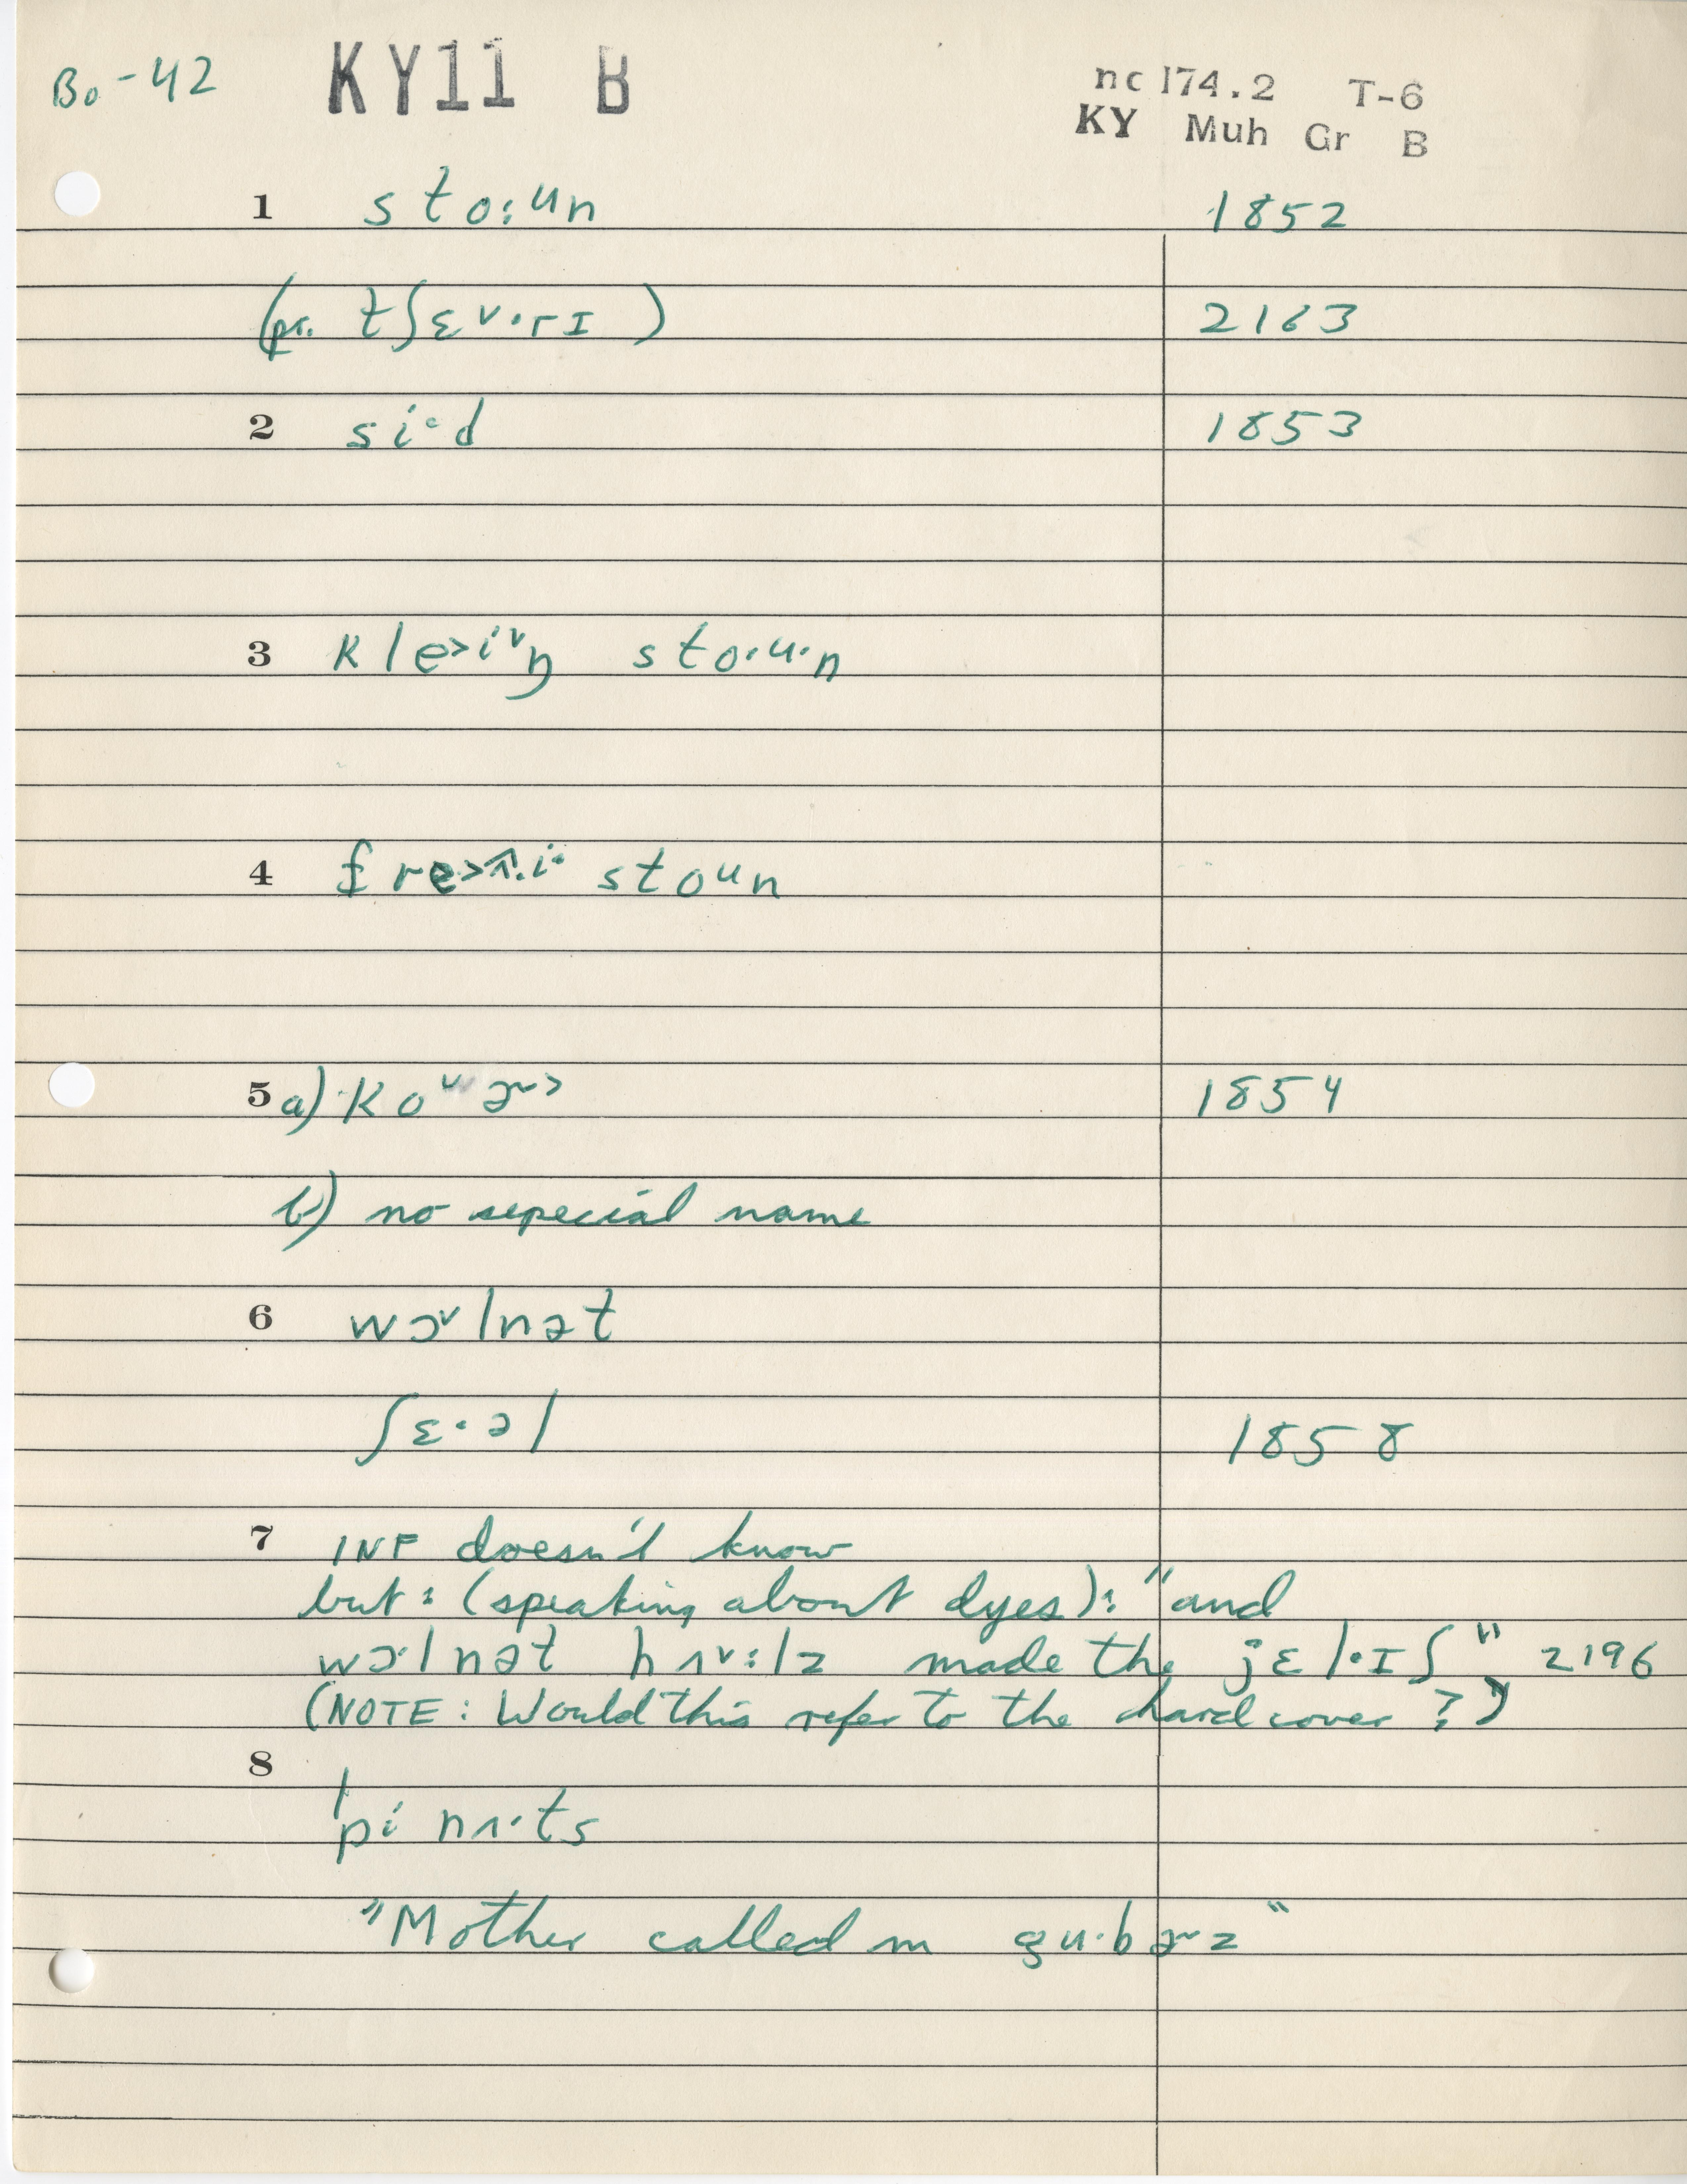 Bo-42 KY11 B nc 174.2 T-6
KY Muh Gr B
1 sto:ᵘn 1852
(pr. tʃɛv·rɪ) 2163
2 si·d 1853
3 kle>iᵛŋ sto·u·n
4 stoᵘn
5 a) koᵘɚ> 1854
b) no sepecial name
6 wɔᵛlnət
ʃɛ·əl 1858
7 INF doesn't know
but: (speaking about dyes): "and
wɔ·lnət hʌᵛ:lz made the jɛl·ɪʃ" 2196
(NOTE: Would this refer to the hard cover?)
8
ˈpi nʌ·ts
"Mother called m gu·bɚz"